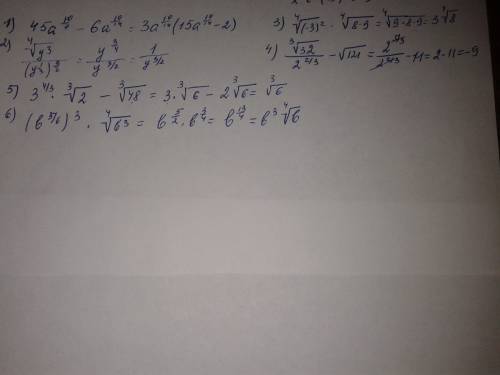 1) 45a^{10/7} - 6a^{10/14} = 3a^{10/14}(15a^{10/14} - 2)
2) \frac{\sqrt[4]{y^3}}{(y^{})^{}} = \frac{y^{3/4}}{y^{}} = \frac{1}{y^{3/2}}
3) \sqrt[4]{(-3)^2} · \sqrt[4]{8·9} = \sqrt[4]{9·8·9} = 3\sqrt[4]{8}
4) \frac{\sqrt[3]{32}}{2^{2/3}} - \sqrt{121} = \frac{2^{5/3}}{2^{2/3}} - 11 = 2 - 11 = -9
5) 3^{4/3} · \sqrt[3]{2} - \sqrt[3]{48} = 3·\sqrt[3]{6} - 2\sqrt[3]{6} = \sqrt[3]{6}
6) (b^{5/6})^3 · \sqrt[4]{b^3} = b^{5/2} · b^{3/4} = b^{13/4} = b^3\sqrt[4]{b}